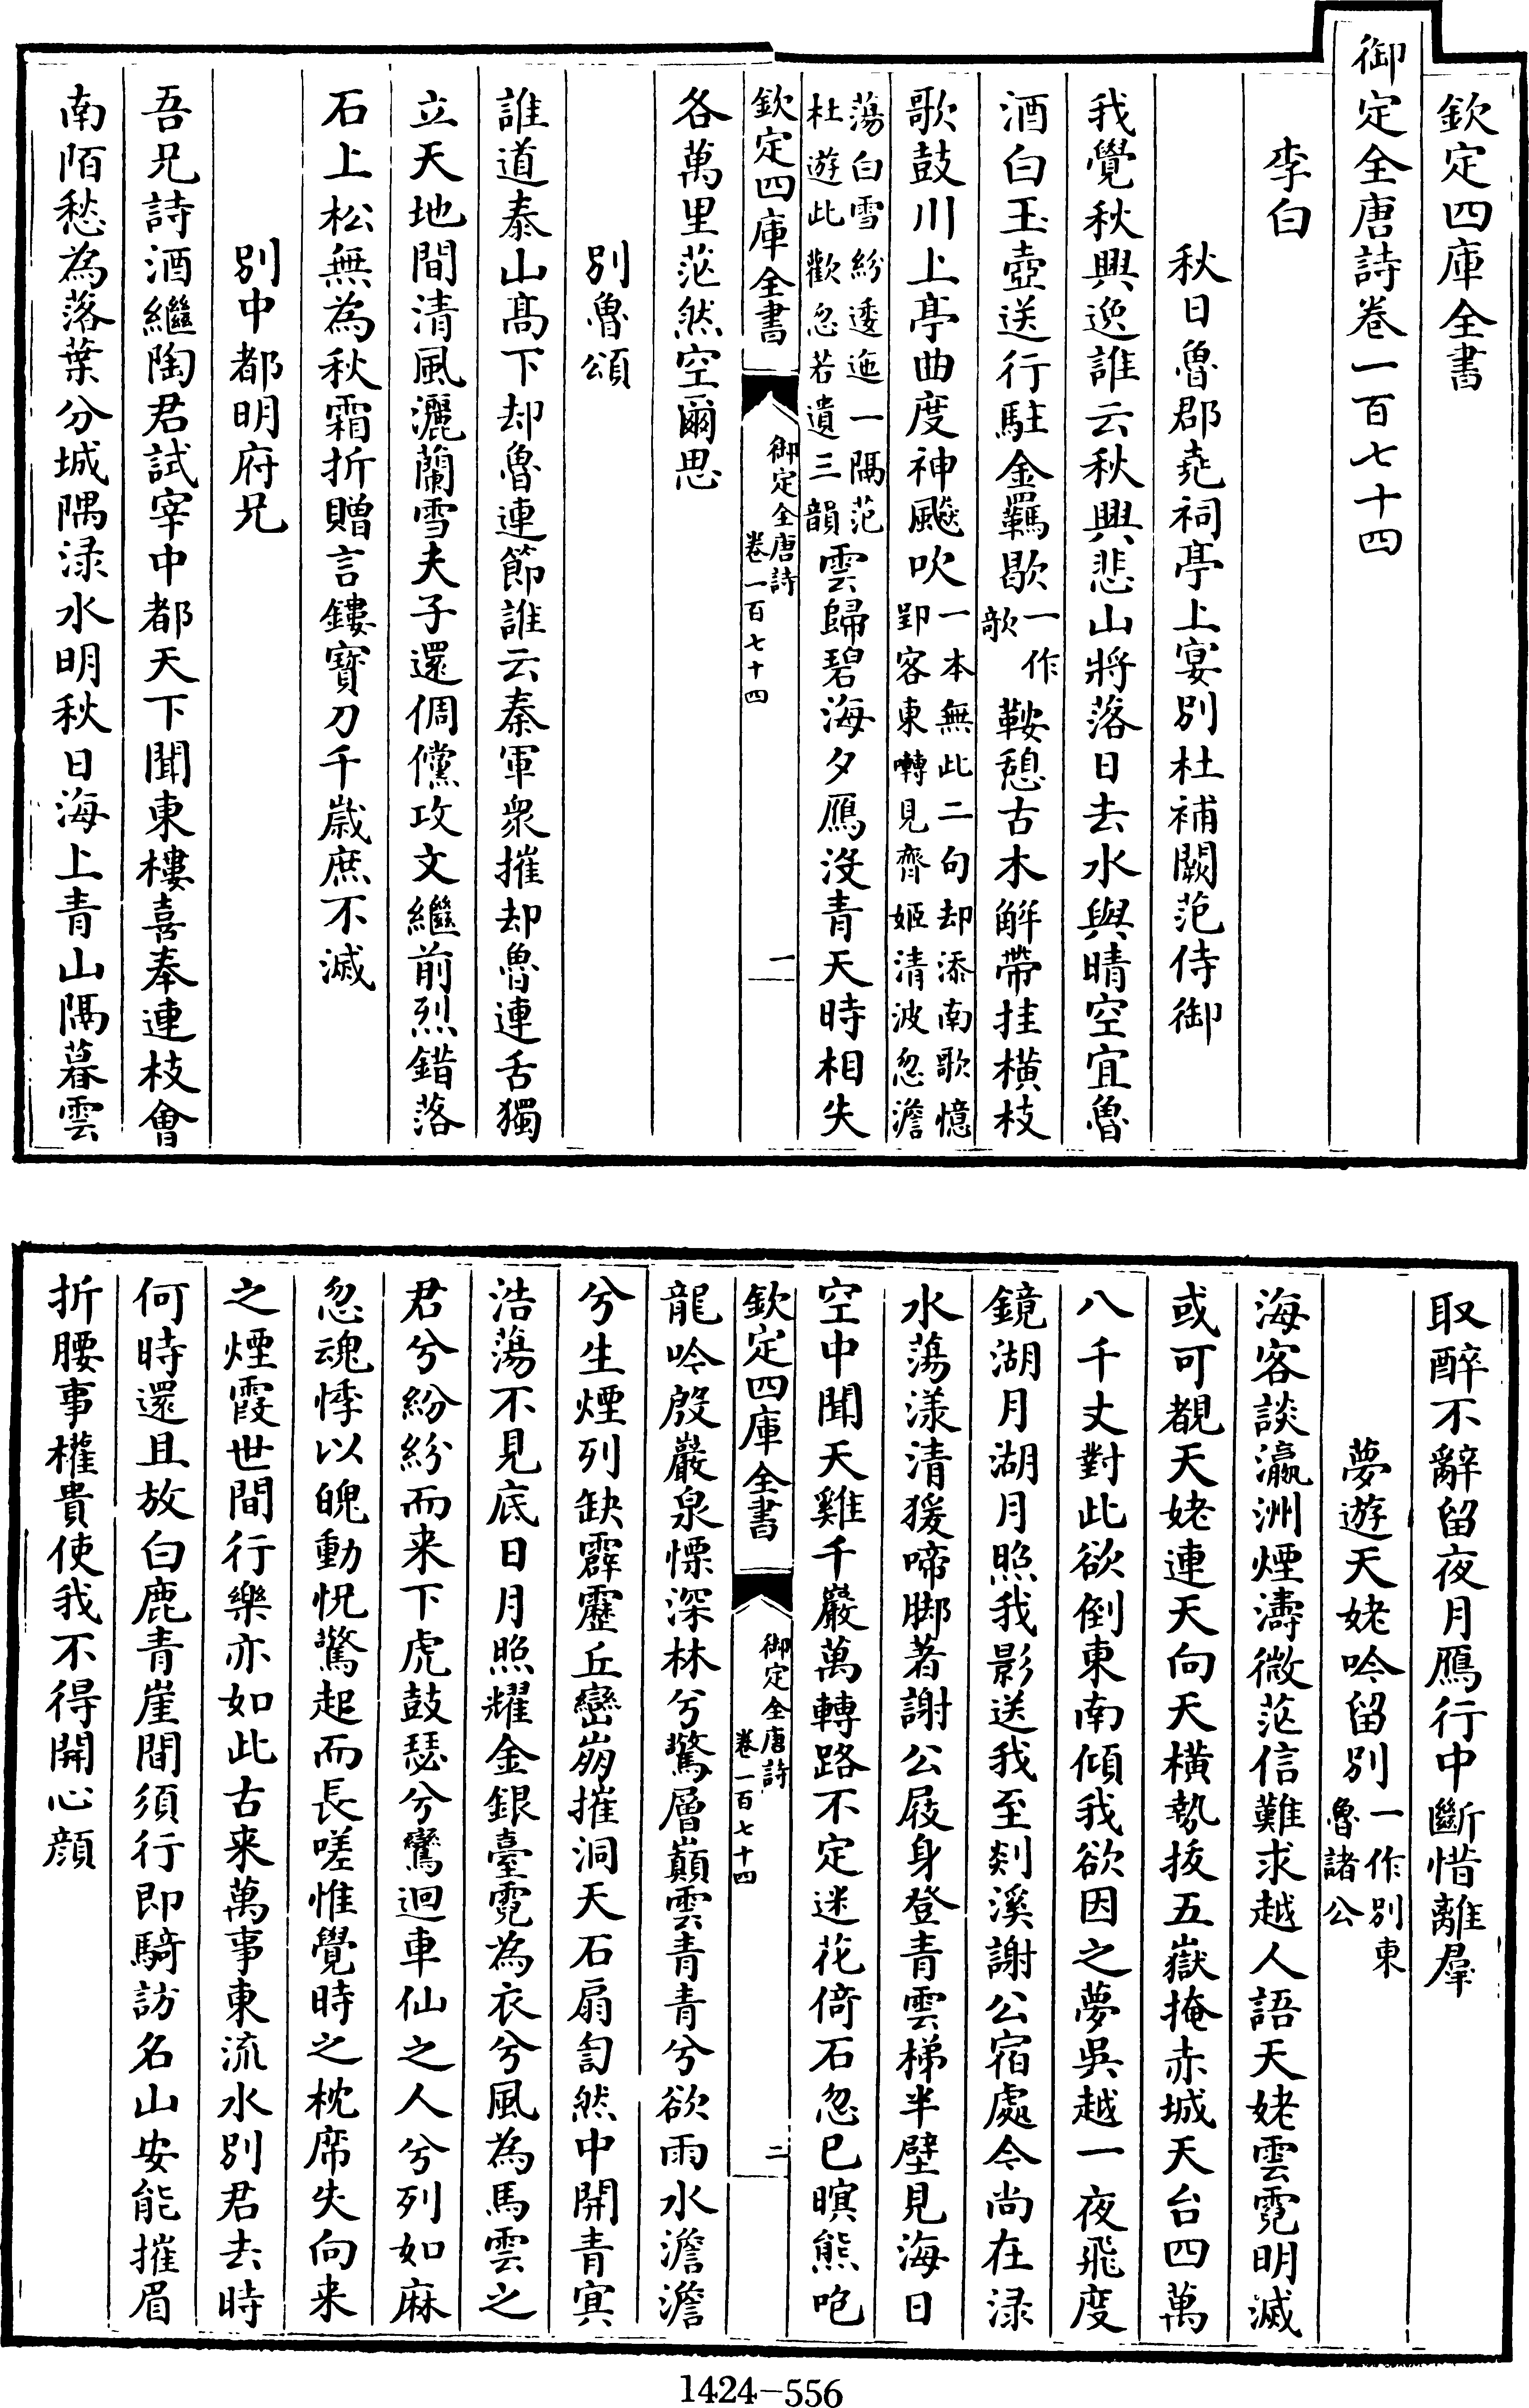 欽定四庫全書
御定全唐詩卷一百七十四
李白
秋日魯郡堯祠亭上宴別杜補闕范侍御
我覺秋興逸誰云秋興悲山將落日去水與晴空宜魯
酒白玉壺送行駐金羈歇一作歌鞍憩古木解帶挂橫枝
歌鼓川上亭曲度神飈吹一本無此二句却添南歌憶郢客東囀見齊姬清波忽澹
蕩白雪紛逶迤一隅范杜遊此歡忽若遺三韻雲歸碧海夕鴈沒青天時相失
欽定四庫全書
御定全唐詩
卷一百七十四
一
各萬里茫然空爾思
別魯頌
誰道泰山高下却魯連節誰云秦軍衆摧却魯連舌獨
立天地間清風灑蘭雪夫子還倜儻攻文繼前烈錯落
石上松無為秋霜折贈言鏤寶刀千歲庶不滅
別中都明府兄
吾兄詩酒繼陶君試宰中都天下聞東樓喜奉連枝會
南陌愁為落葉分城隅淥水明秋日海上青山隔暮雲
取醉不辭留夜月鴈行中斷惜離羣
夢遊天姥吟留別一作別東魯諸公
海客談瀛洲煙濤微茫信難求越人語天姥雲霓明滅
或可覩天姥連天向天橫勢拔五嶽掩赤城天台四萬
八千丈對此欲倒東南傾我欲因之夢吳越一夜飛度
鏡湖月湖月照我影送我至剡溪謝公宿處今尚在淥
水蕩漾清猨啼脚著謝公屐身登青雲梯半壁見海日
空中聞天雞千巖萬轉路不定迷花倚石忽已暝熊咆
欽定四庫全書
御定全唐詩
卷一百七十四
二
龍吟殷巖泉慄深林兮驚層巔雲青青兮欲雨水澹澹
兮生煙列缺霹靂丘巒崩摧洞天石扇訇然中開青冥
浩蕩不見底日月照耀金銀臺霓為衣兮風為馬雲之
君兮紛紛而来下虎鼓瑟兮鸞迴車仙之人兮列如麻
忽魂悸以魄動怳驚起而長嗟惟覺時之枕席失向来
之煙霞世間行樂亦如此古来萬事東流水別君去時
何時還且放白鹿青崖間須行即騎訪名山安能摧眉
折腰事權貴使我不得開心顔
1424-556